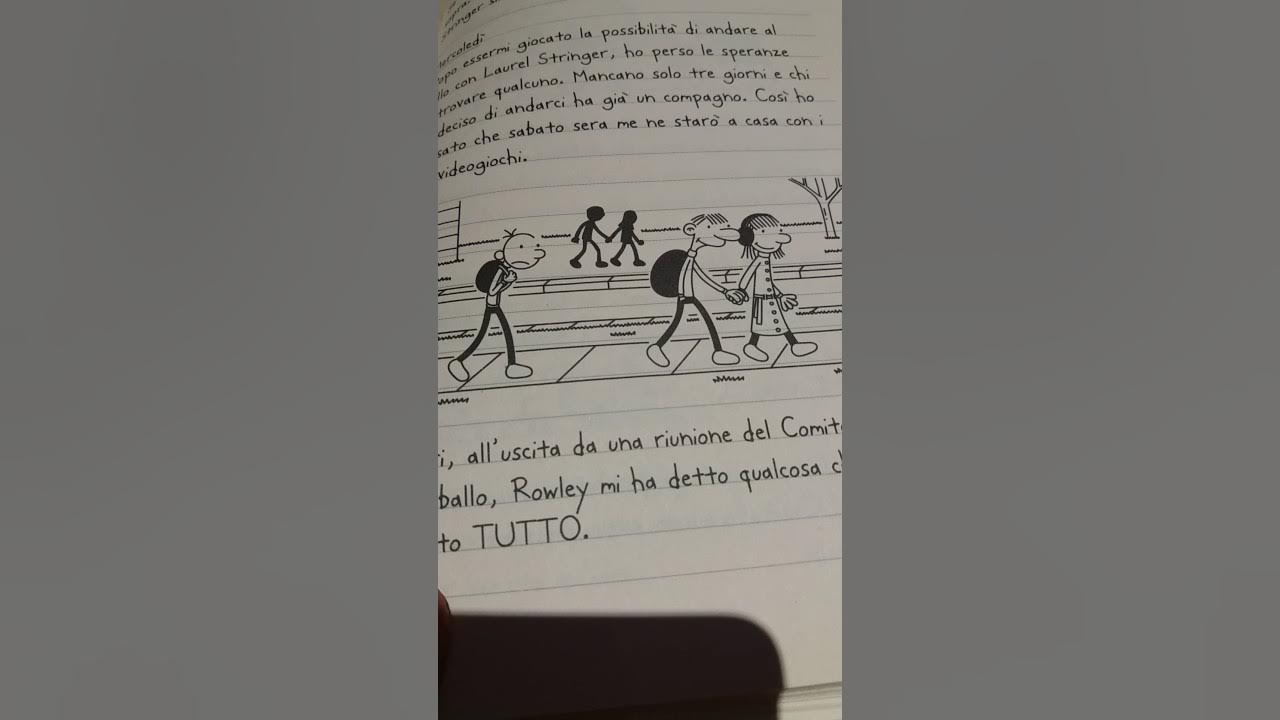 Stringer
essermi giocato la possibilità di andare al
con Laurel Stringer, ho perso le speranze
trovare qualcuno. Mancano solo tre giorni e chi
deciso di andarci ha già un compagno. Così ho
sato che sabato sera me ne starò a casa con i
videogiochi.
i, all'uscita da una riunione del Comit
ballo, Rowley mi ha detto qualcosa c
to TUTTO.